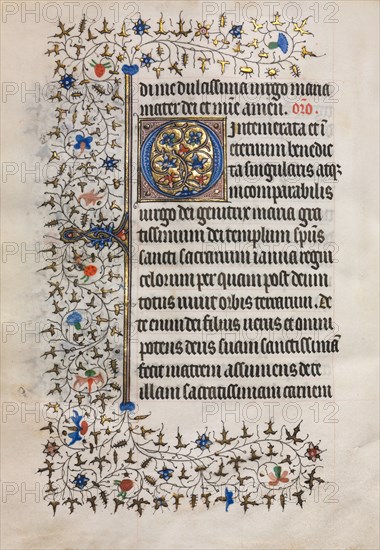 di me dulcissima virgo maria
mater dei et mīe amen. orō.
O Intemerata et ī
eternum benedic
ta singularis atqȝ
incomparabilis
virgo dei genitrix maria gra
tissimum dei templum spūs
sancti sacrarium ianua regni
celorum per quam post deum
totus vivit orbis terrarum. De
te enim dei filius verus et omni
potens deus suam sanctissimā
fecit matrem assumens de te
illam sacratissimam carnem
PHOTO12